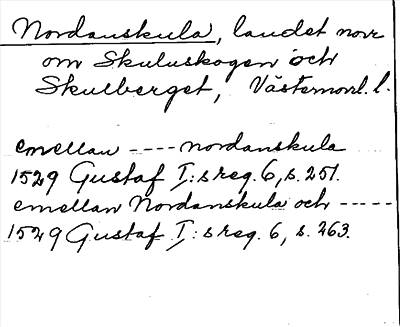 Nordanskula, landet norr
om Skuluskogen och
Skulberget, Västernorrl. l.
emellan ---- nordanskula
1529 Gustaf I:s reg. 6, s. 251.
emellan Nordanskula och -----
1529 Gustaf I:s reg. 6, s. 263.